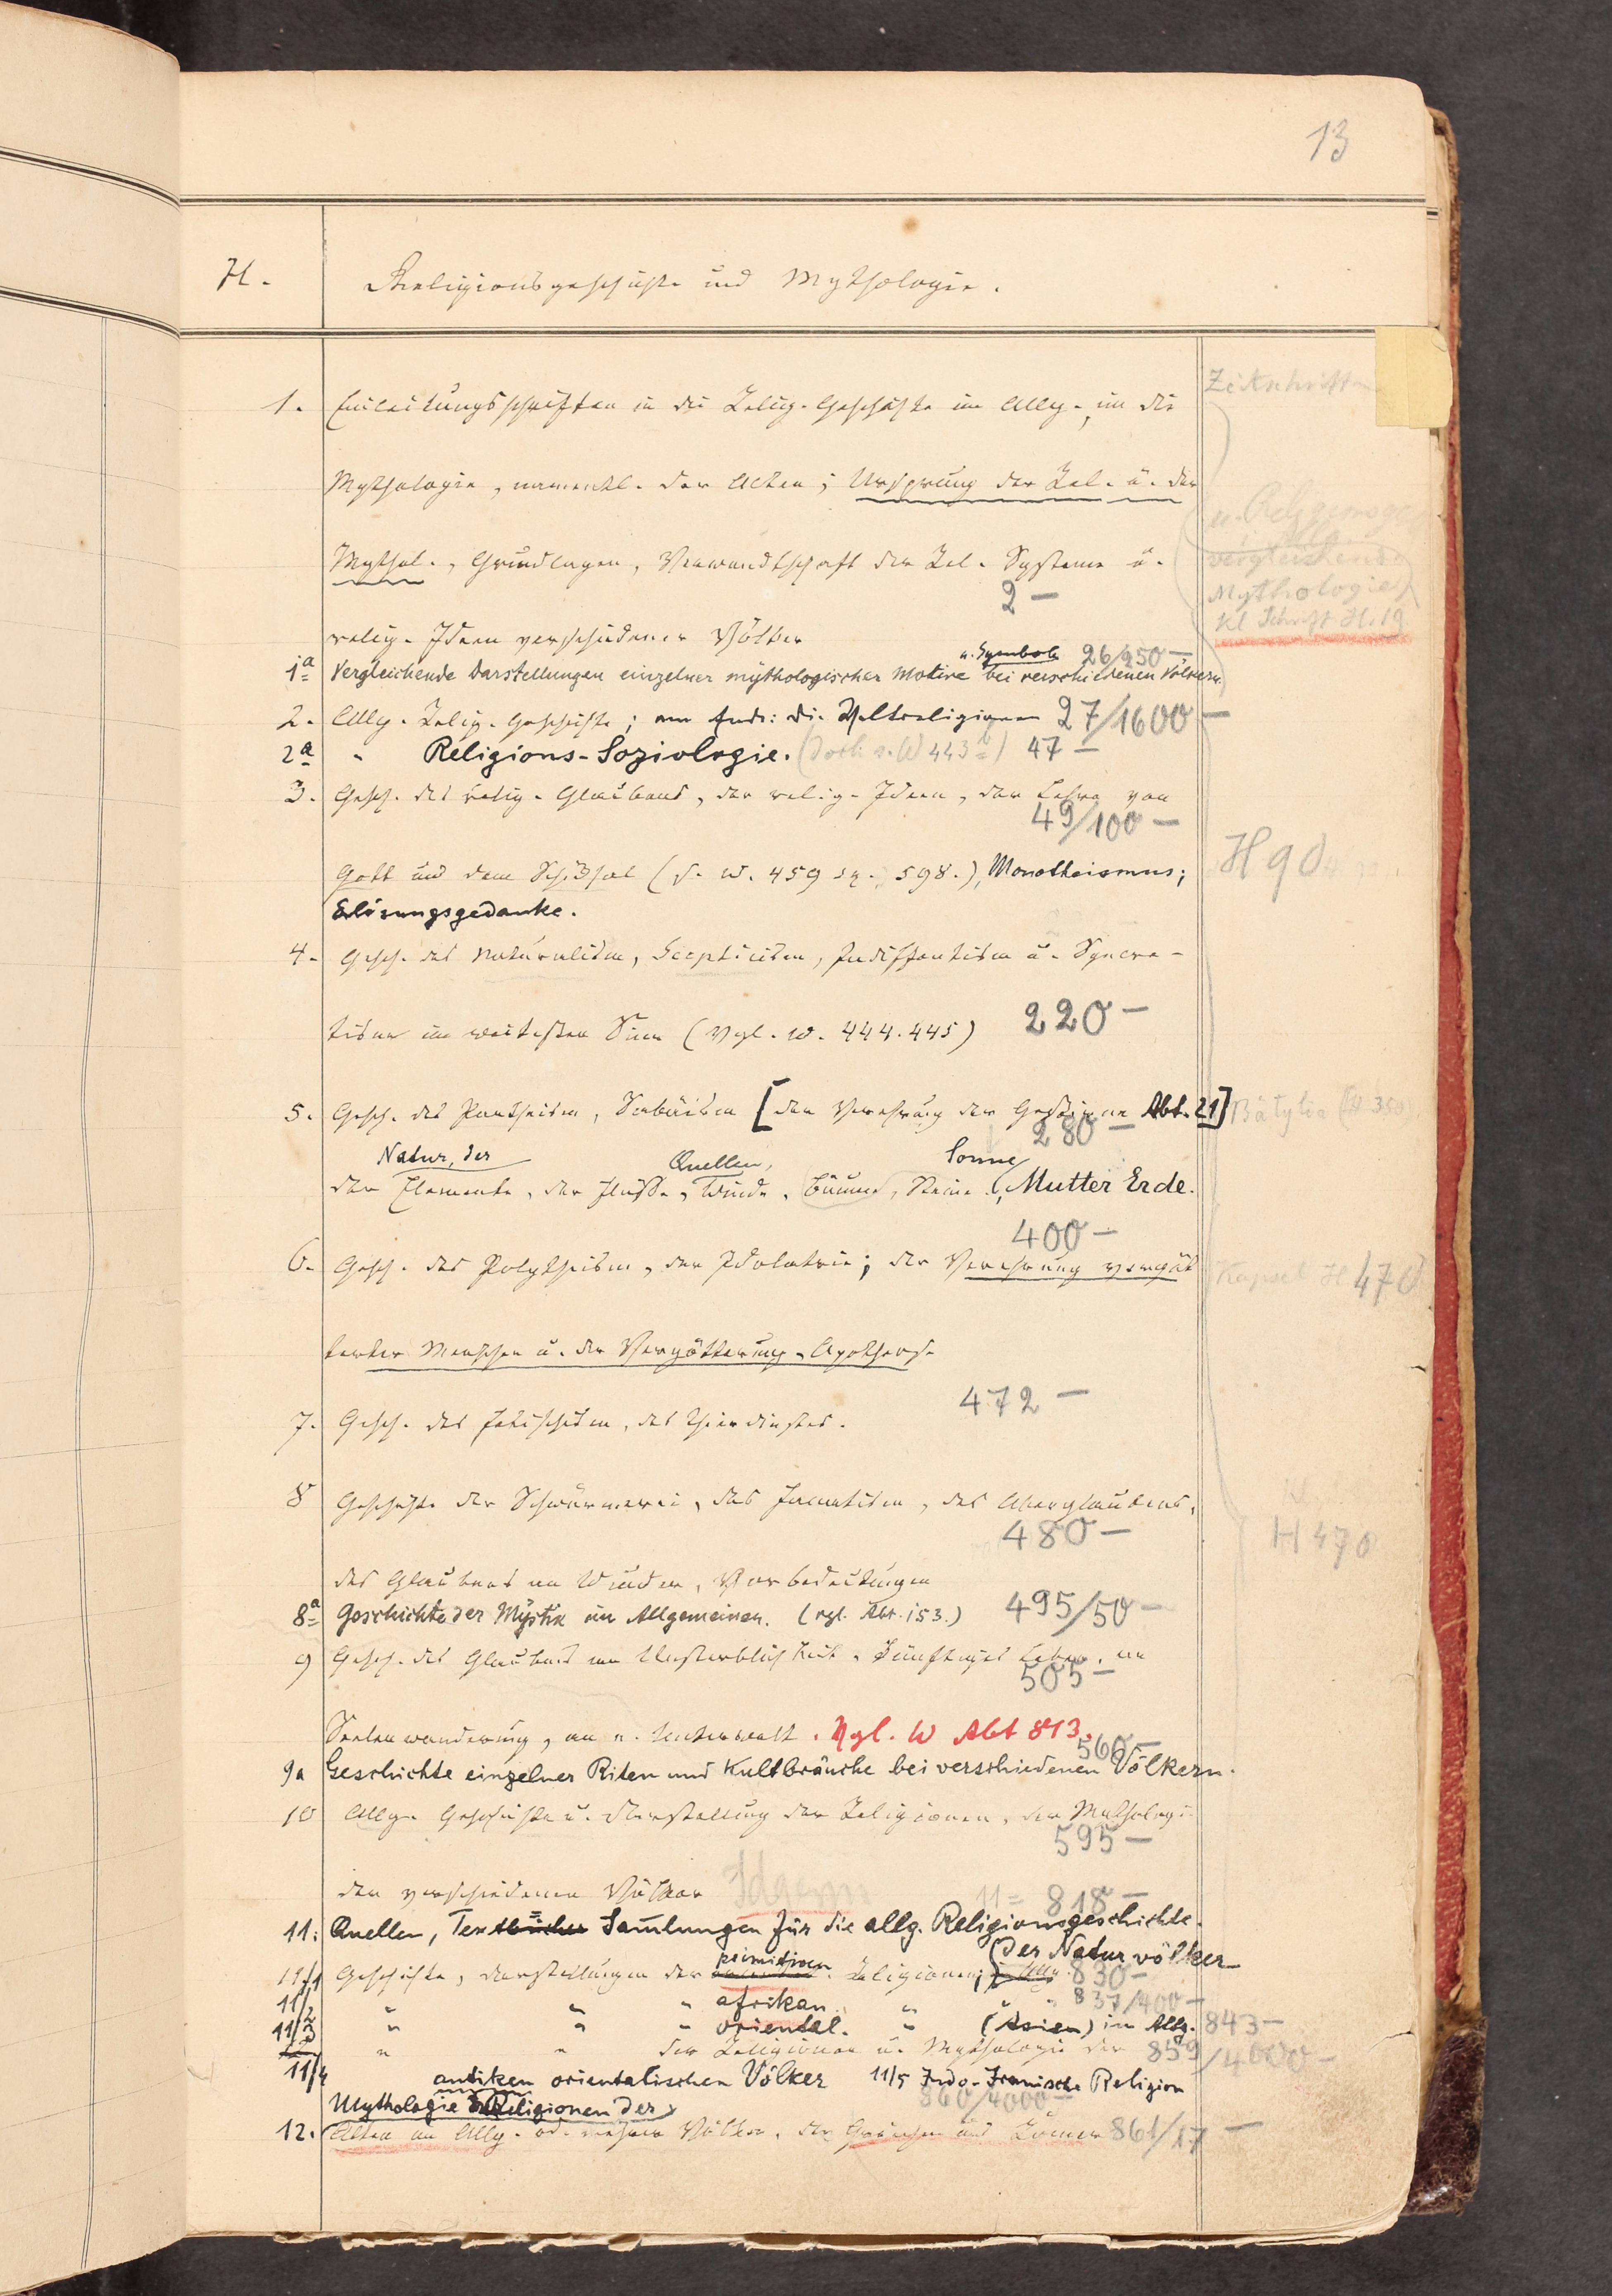 13
H. Religionsgeschichte und Mythologie.
Zeitschriften
1. Einleitungsschriften in die Relig. Geschichte im Allg., in die
Mythologie, namentl. der Alten; Ursprung der Rel. u. der
Mythol., Grundlagen, Verwandtschaft der Rel. Systeme u.
vergleichende
Mythologie
kl Schrift H. 19
2 —
relig. Ideen verschiedener Völker
u. Symbole 26/950 —
1a Vergleichende Darstellungen einzelner mythologischer Motive bei verschiedenen Völkern
2. Allg. Relig. Geschichte; am Ende: die Weltreligionen 27/1600 —
2a " Religions-Soziologie. (Doch s. W 443b) 47 —
3. Gesch. des relig. Glaubens, der relig. Ideen, der Lehre von
49/100 —
Gott und dem Schicksal (s. W. 459 sq. 598.), Monotheismus;
H 90
Erlösungsgedanke.
4. Gesch. des Naturalism, Scepticism, Indifferentism u. Syncre-
tismus im weitesten Sinn (Vgl. W. 444. 445) 220 —
5. Gesch. des Pantheism, Sabäism [der Verehrung der Gestirne Abt. 21] Bätylia (H 350)
280 —
Natur, der Quellen, Sonne
der Elemente, der Flüsse, Winde, Bäume, Steine, Mutter Erde.
400 —
6. Gesch. des Polytheism, der Idolatrie; der Verehrung vergöt
Kapsel H 470
terter Menschen u. der Vergötterung, Apotheose
472 —
7. Gesch. des Fetischism, des Thierdienstes.
8 Geschichte der Schwärmerei, des Fanatism, des Aberglaubens,
480 —
H 470
des Glaubens an Wunder, Vorbedeutungen
8a Geschichte der Mystik im Allgemeinen. (vgl. Abt. 153.) 495/50 —
9 Gesch. des Glaubens an Unsterblichkeit, künftiges Leben, an
505 —
Seelenwanderung, an e. Unterwelt. Vgl. W Abt 813.
560 —
9a Geschichte einzelner Riten und Kultbräuche bei verschiedenen Völkern.
10 Allg. Geschichte u. Darstellung der Religionen, der Mythologie
595 —
der verschiedenen Völker
11 = 818 —
11. Quellen, Textbücher Sammlungen für die allg. Religionsgeschichte.
primitiven (Der Naturvölker
11/1 Geschichte, Darstellungen der Religionen; 830 —
11/2 " " " afrikan. " 837/400 —
11/3 " " " oriental. " (Asien) im Allg. 843 —
" " der Religionen u. Mythologie der 859/4000 —
11/4 antiken orientalischen Völker 11/5 Indo-Iranische Religion
860/4000 —
Mythologie u. Religionen der
12. Alten im Allg. od. mehrer Völker, der Griechen und Römer 861/17 —